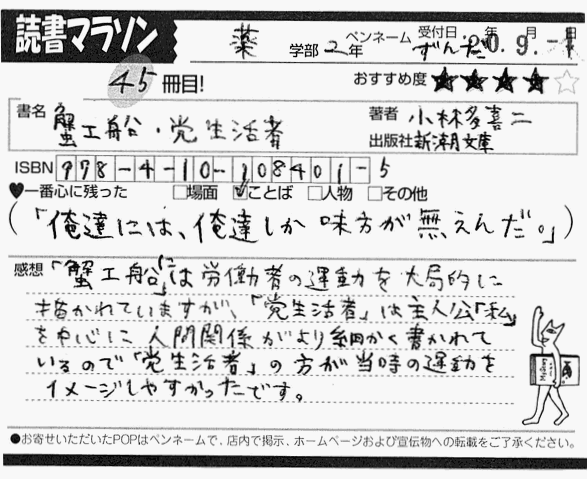 読書マラソン
薬 学部 2年 ペンネーム ずんだ 受付日 20.9.-1 年 月 日
45 冊目! おすすめ度 ★★★★☆
書名 蟹工船・党生活者 著者 小林多喜二
出版社 新潮文庫
ISBN 978-4-10-108401-5
♥一番心に残った □場面 ☑ことば □人物 □その他
(「俺達には、俺達しか味方が無えんだ。」)
感想 「蟹工船」には労働者の運動を大局的に
描かれていますが、「党生活者」は主人公「私」
を中心に人間関係がより細かく書かれて
いるので「党生活者」の方が当時の運動を
イメージしやすかったです。
●お寄せいただいたPOPはペンネームで、店内で掲示、ホームページおよび宣伝物への転載をご了承ください。